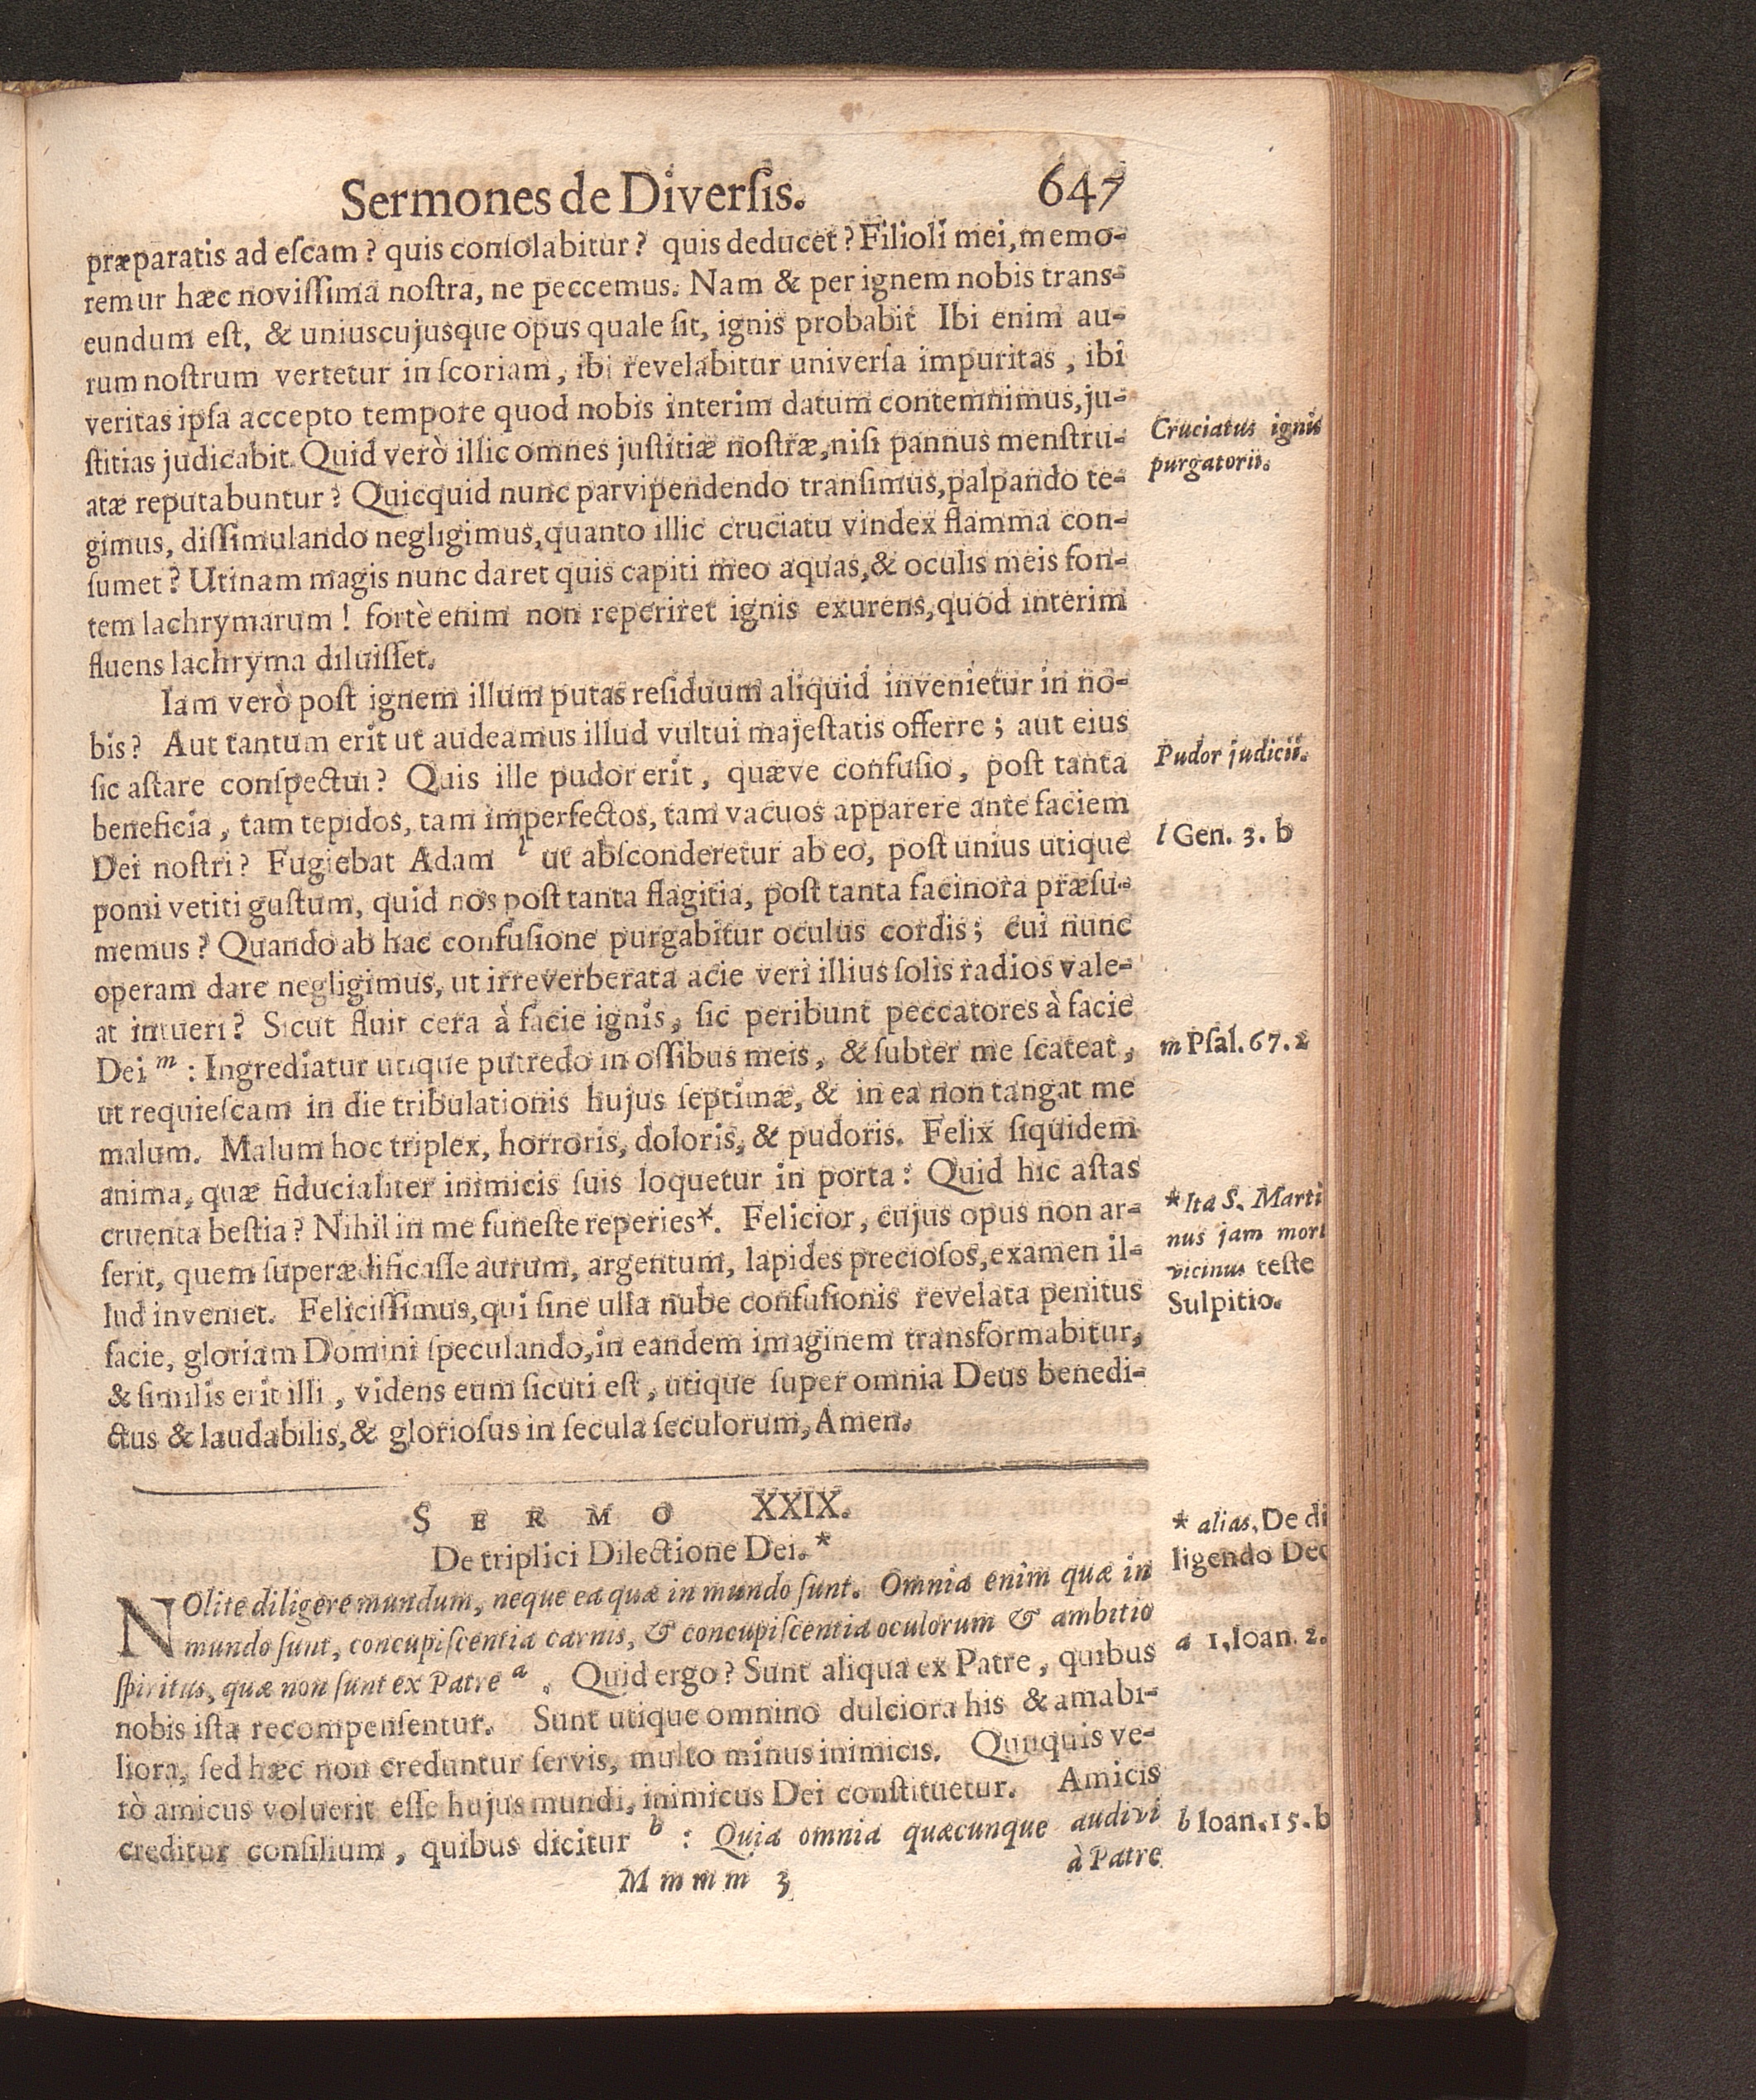 Sermones de Diverſis. 647
præparatis ad eſcam? quis conſolabitur? quis deducet? Filioli mei, memo-
remur hæc noviſſima noſtra, ne peccemus. Nam & per ignem nobis trans-
eundum eſt, & uniuscujusque opus quale ſit, ignis probabit Ibi enim au-
rum noſtrum vertetur in ſcoriam, ibi revelabitur univerſa impuritas, ibi
veritas ipſa accepto tempore quod nobis interim datum contemnimus, ju-
ſtitias judicabit. Quid verò illic omnes juſtitiæ noſtræ, niſi pannus menſtru-
atæ reputabuntur? Quicquid nunc parvipendendo tranſimus, palpando te-
gimus, diſſimulando negligimus, quanto illic cruciatu vindex flamma con-
ſumet? Utinam magis nunc daret quis capiti meo aquas, & oculis meis fon-
tem lachrymarum! fortè enim non reperiret ignis exurens, quod interim
fluens lachryma diluiſſet.
Cruciatus ignis
purgatorii.
Iam verò poſt ignem illum putas reſiduum aliquid invenietur in no-
bis? Aut tantum erit ut audeamus illud vultui majeſtatis offerre; aut eius
ſic aſtare conſpectui? Quis ille pudor erit, quæve confuſio, poſt tanta
beneficia, tam tepidos, tam imperfectos, tam vacuos apparere ante faciem
Dei noſtri? Fugiebat Adam l ut abſconderetur ab eo, poſt unius utique
pomi vetiti guſtum, quid nos poſt tanta flagitia, poſt tanta facinora præſu-
memus? Quando ab hac confuſione purgabitur oculus cordis; cui nunc
operam dare negligimus, ut irreverberata acie veri illius ſolis radios vale-
at intueri? Sicut fluit cera à facie ignis, ſic peribunt peccatores à facie
Dei m : Ingrediatur utique putredo in oſſibus meis, & ſubter me ſcateat,
ut requieſcam in die tribulationis hujus ſeptimæ, & in ea non tangat me
malum. Malum hoc triplex, horroris, doloris, & pudoris. Felix ſiquidem
anima, quæ fiducialiter inimicis ſuis loquetur in porta: Quid hic aſtas
cruenta beſtia? Nihil in me funeſte reperies*. Felicior, cujus opus non ar-
ſerit, quem ſuperædificaſſe aurum, argentum, lapides precioſos, examen il-
lud inveniet. Feliciſſimus, qui ſine ulla nube confuſionis revelata penitus
facie, gloriam Domini ſpeculando, in eandem imaginem transformabitur,
& ſimilis erit illi, videns eum ſicuti eſt, utique ſuper omnia Deus benedi-
ctus & laudabilis, & glorioſus in ſecula ſeculorum, Amen.
Pudor judicii.
l Gen. 3. b
m Pſal. 67. 2
* Ita S. Marti
nus jam mort
vicinus teſte
Sulpitio.
SERMO XXIX.
De triplici Dilectione Dei.*
NOlite diligere mundum, neque ea quæ in mundo ſunt. Omnia enim quæ in
mundo ſunt, concupiſcentia carnis, & concupiſcentia oculorum & ambitio
ſpiritus, quæ non ſunt ex Patre a . Quid ergo? Sunt aliqua ex Patre, quibus
nobis iſta recompenſentur. Sunt utique omnino dulciora his & amabi-
liora, ſed hæc non creduntur ſervis, multo minus inimicis. Quuquis ve-
rò amicus voluerit eſſe hujus mundi, inimicus Dei conſtituetur. Amicis
creditur conſilium, quibus dicitur b : Quia omnia quæcunque audivi
à Patre
Mmmm 3
* alias, De di
ligendo Deo
a 1. Ioan. 2.
b Ioan. 15. b